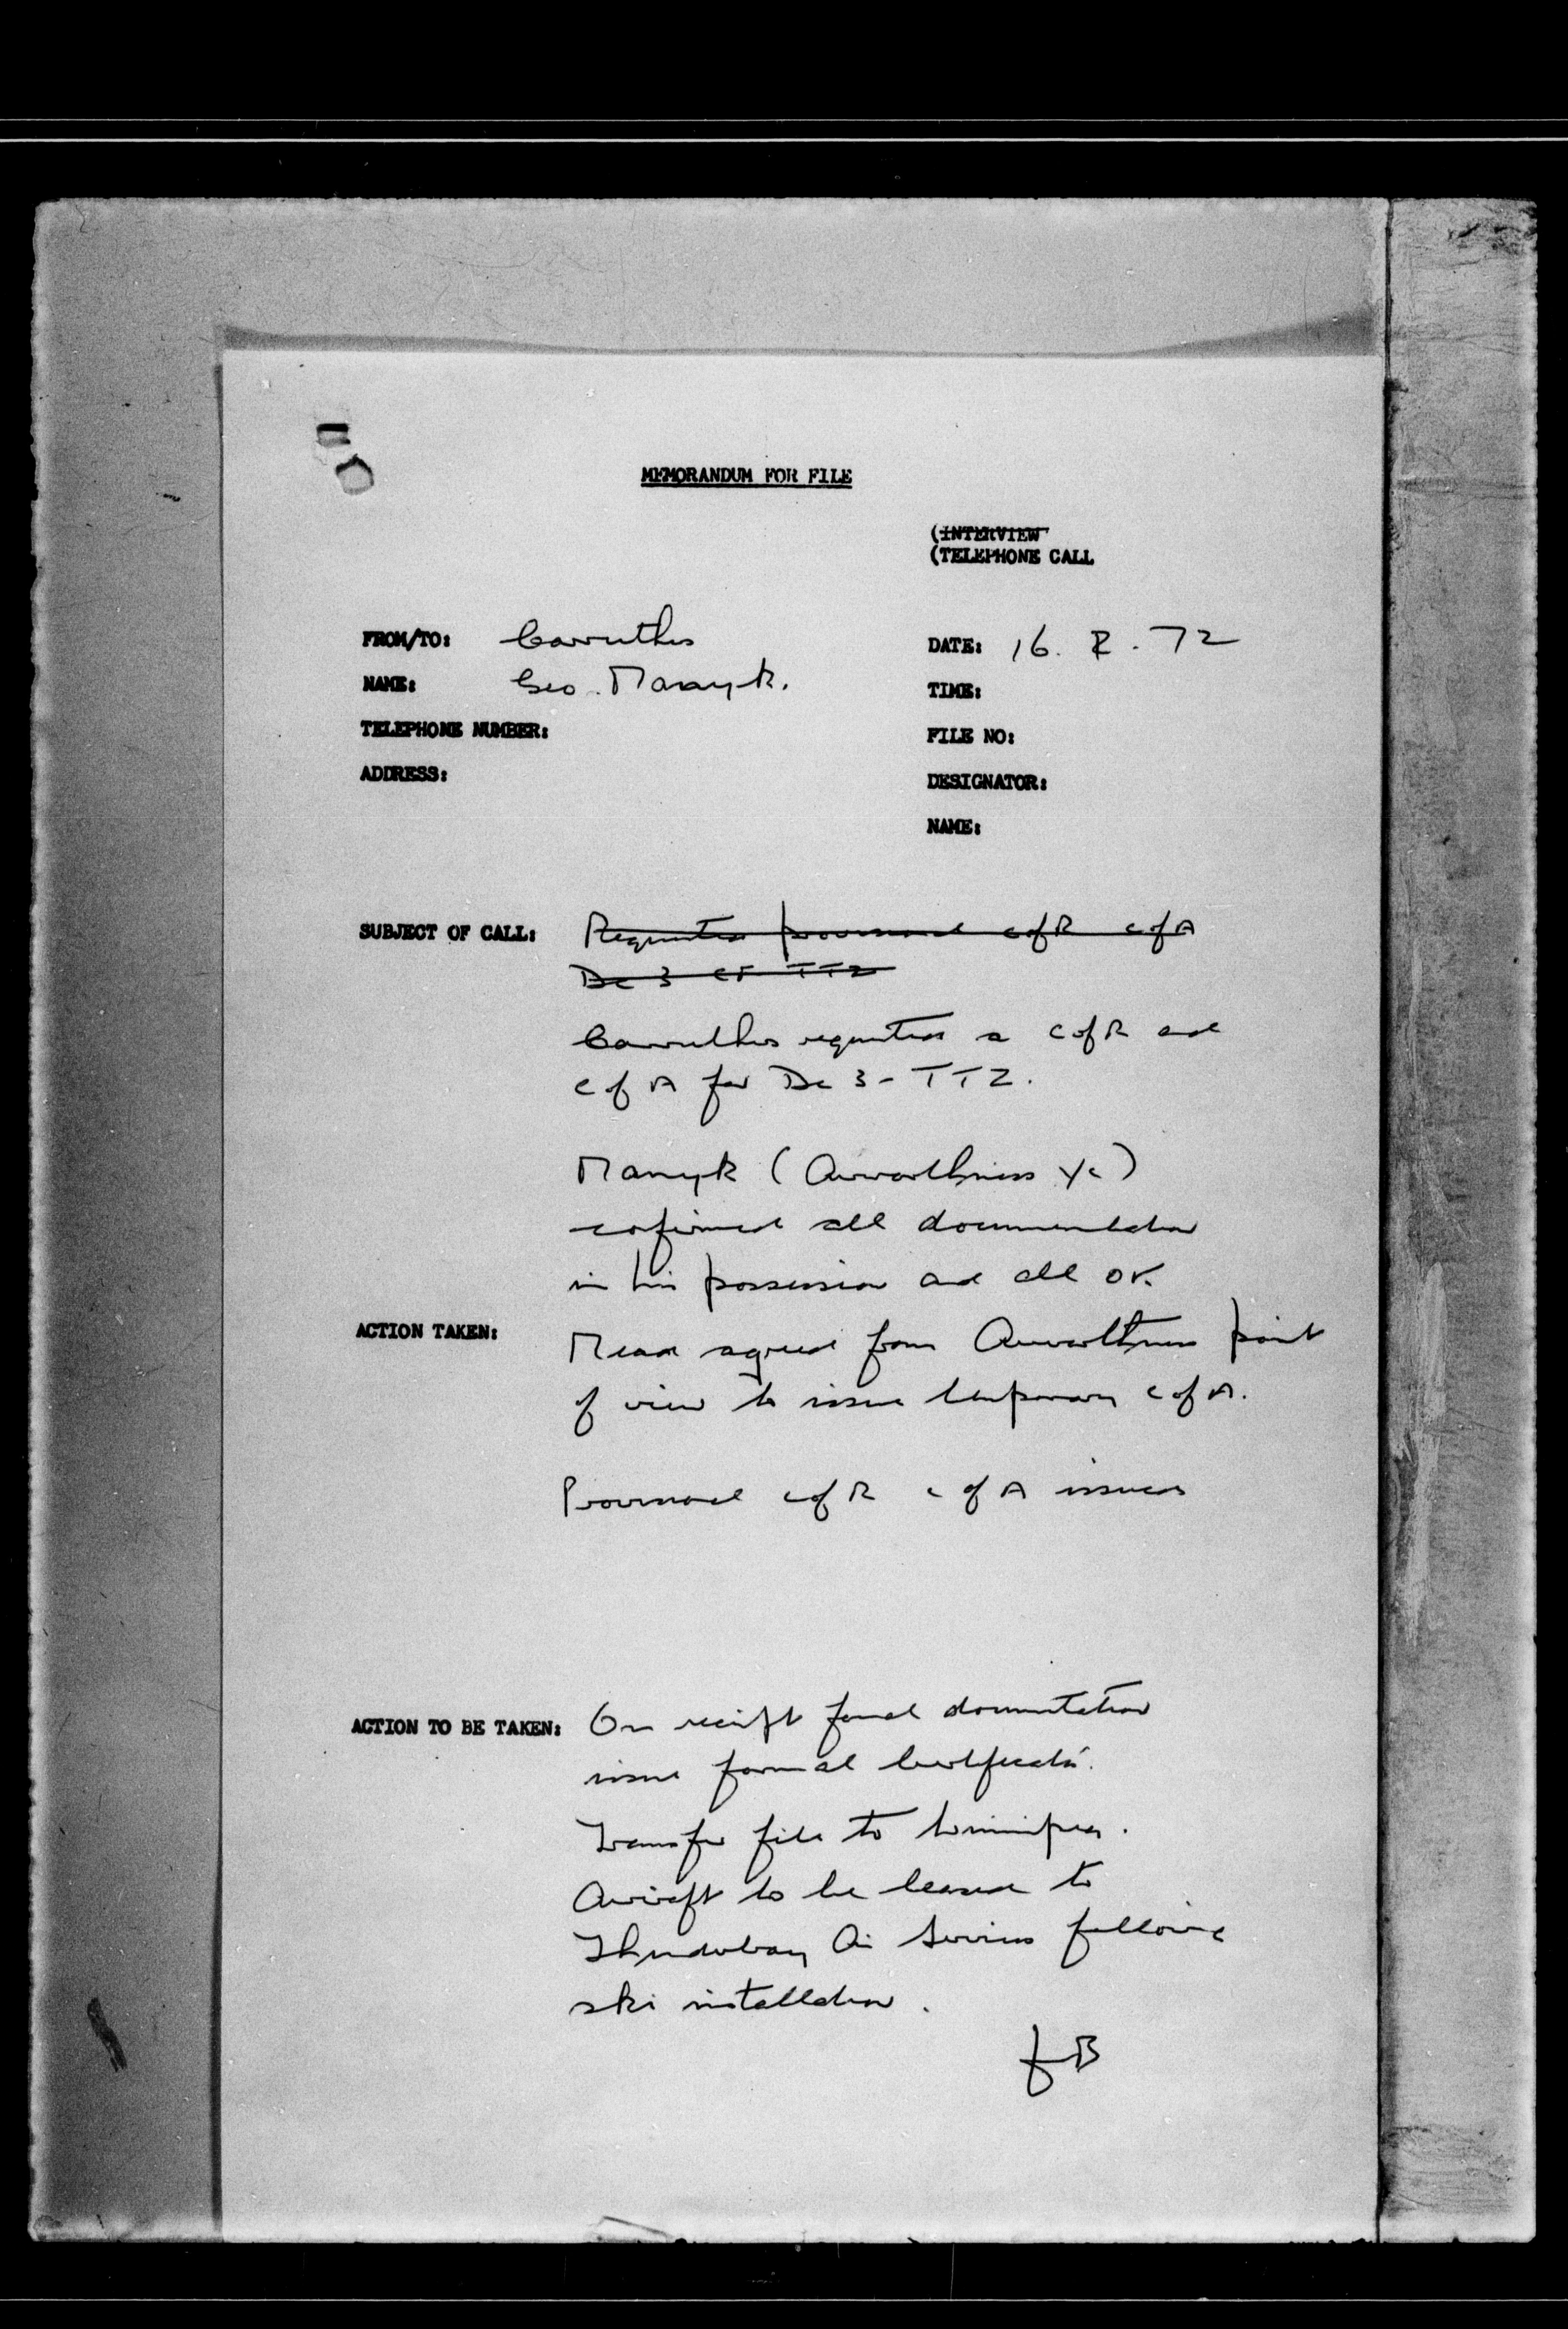 MEMORANDUM FOR FILE
(INTERVIEW
(TELEPHONE CALL
FROM/TO: Carruthers
DATE: 16. 2. 72
NAME: Geo.
TIME:
TELEPHONE NUMBER:
FILE NO:
ADDRESS:
DESIGNATOR:
NAME:
SUBJECT OF CALL: Requested provisional C of R C of A
DC 3 CF TTZ
Carruthers requested a C of R and
C of A for DC 3 - TTZ.
(Airworthiness YC)
confirmed all documentation
in his possession and all OK.
ACTION TAKEN: agreed from Airworthiness point
of view to issue temporary C of A.
Provisional C of R C of A issued
ACTION TO BE TAKEN: On receipt formal documentation
issue formal Certificate.
Transfer file to Winnipeg.
Aircraft to be leased to
Thunderbay Air Services following
ski installation.